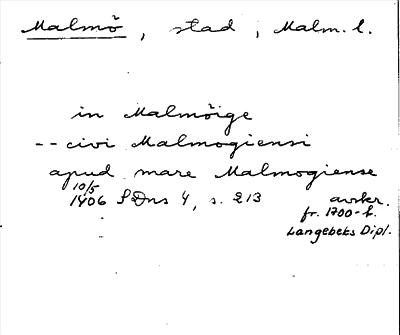 Malmö, stad, Malm. l.
in Malmöige
-- civi Malmogiensi
apud mare Malmogiense
10/5
1406 SDns 4, s. 213
avskr.
fr. 1700-t.
Langebeks Dipl.